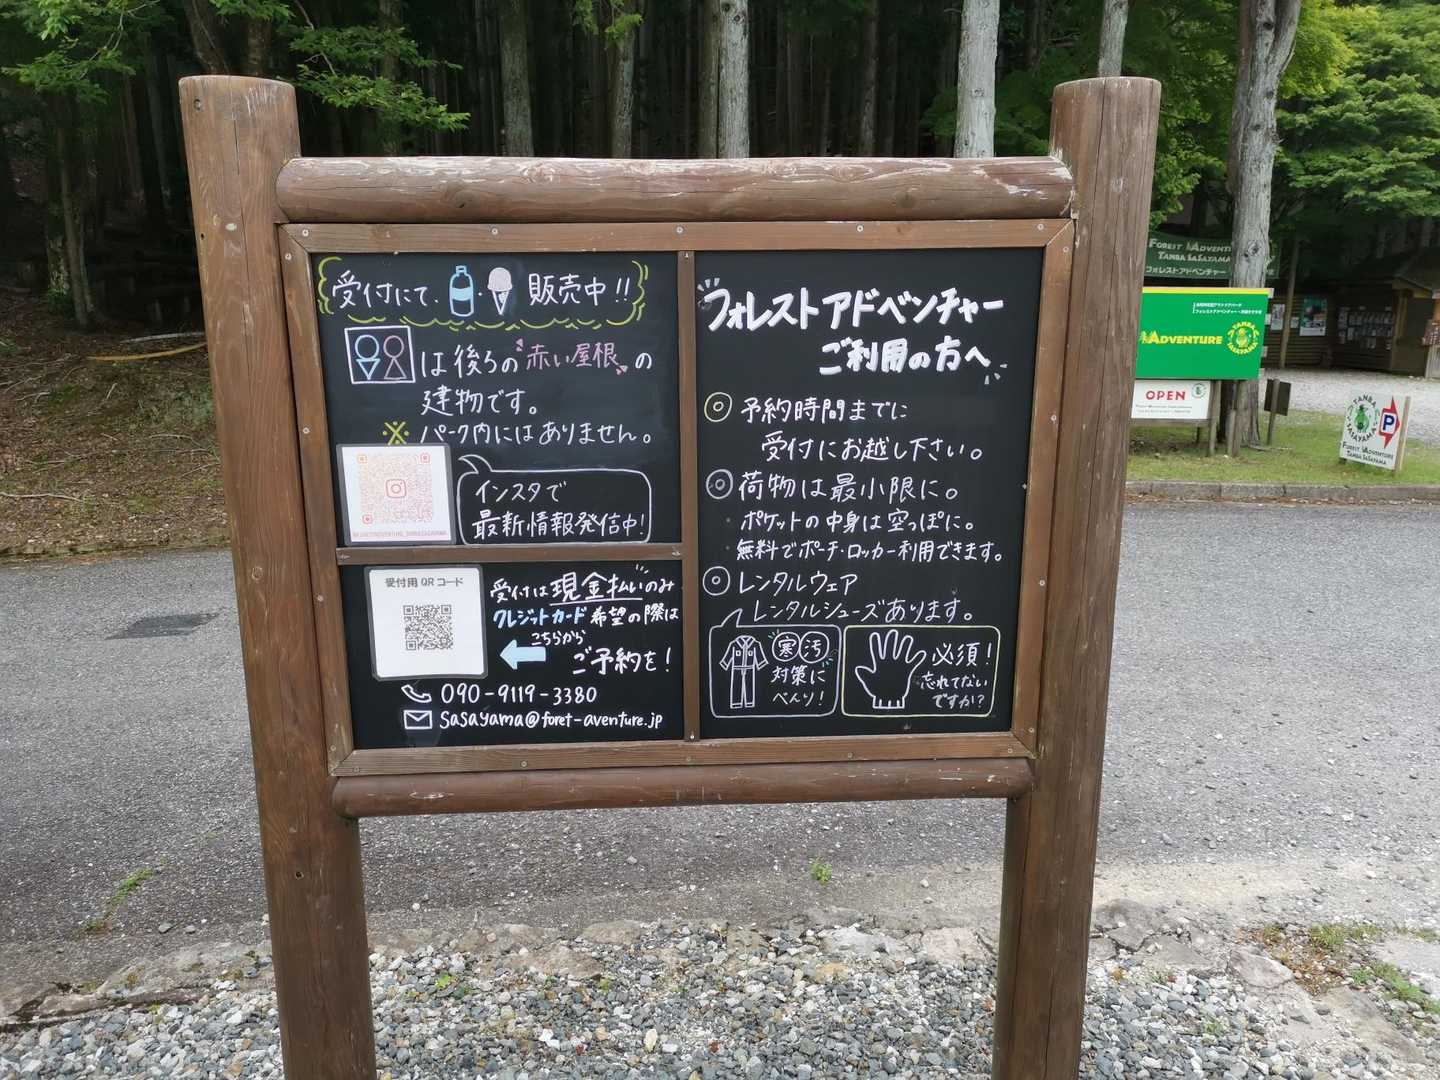 受付にて、
販売中!!
は後ろの"赤い屋根"の
建物です。
※パーク内にはありません。
インスタで
最新情報発信中!
受付用QRコード
受付は現金払いのみ
クレジットカード希望の際は
こちらから
ご予約を!
090-9119-3380
sasayama@foret-aventure.jp
フォレストアドベンチャー
ご利用の方へ
◎予約時間までに
受付にお越し下さい。
◎荷物は最小限に。
ポケットの中身は空っぽに。
無料でポーチ・ロッカー利用できます。
◎レンタルウェア
レンタルシューズあります。
寒 汚
対策に
べんり!
必須!
忘れてない
ですか?
FOREST ADVENTURE
TANBA SASAYAMA
フォレストアドベンチャー
ADVENTURE
TANBA
SASAYAMA
OPEN
TANBA
SASAYAMA
P
FOREST ADVENTURE
TANBA SASAYAMA